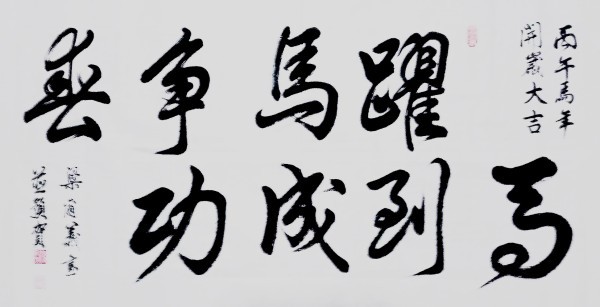 丙午馬年
開歲大吉
躍馬争春
馬到成功